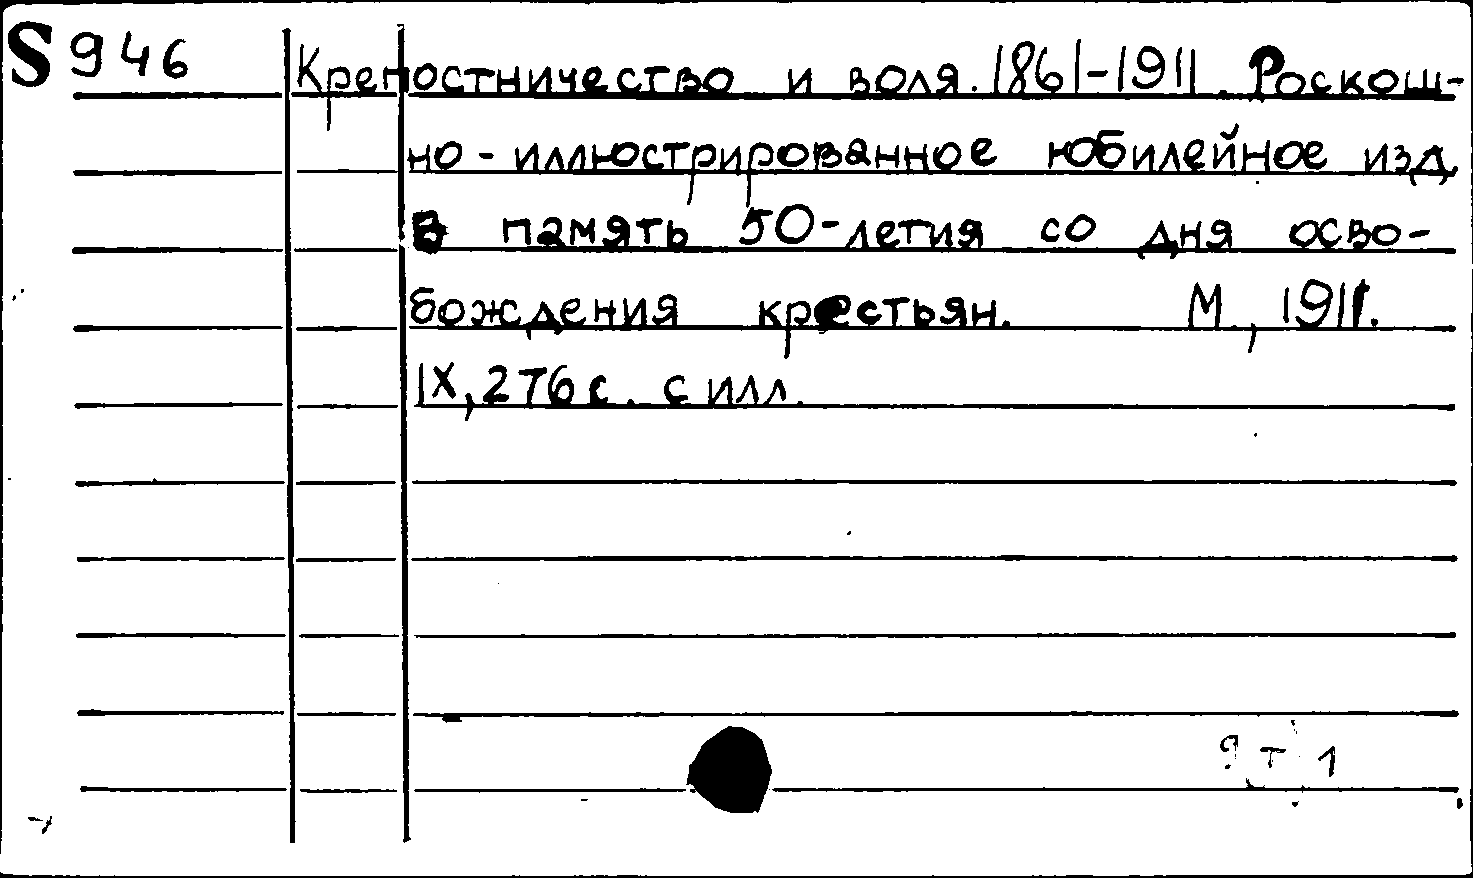 S 946 Крепостничество и воля. 1861-1911. Роскош-
но-иллюстрированное юбилейное изд.
в память 50-летия со дня осво-
бождения крестьян. М., 1911.
IX, 276 с. с илл.